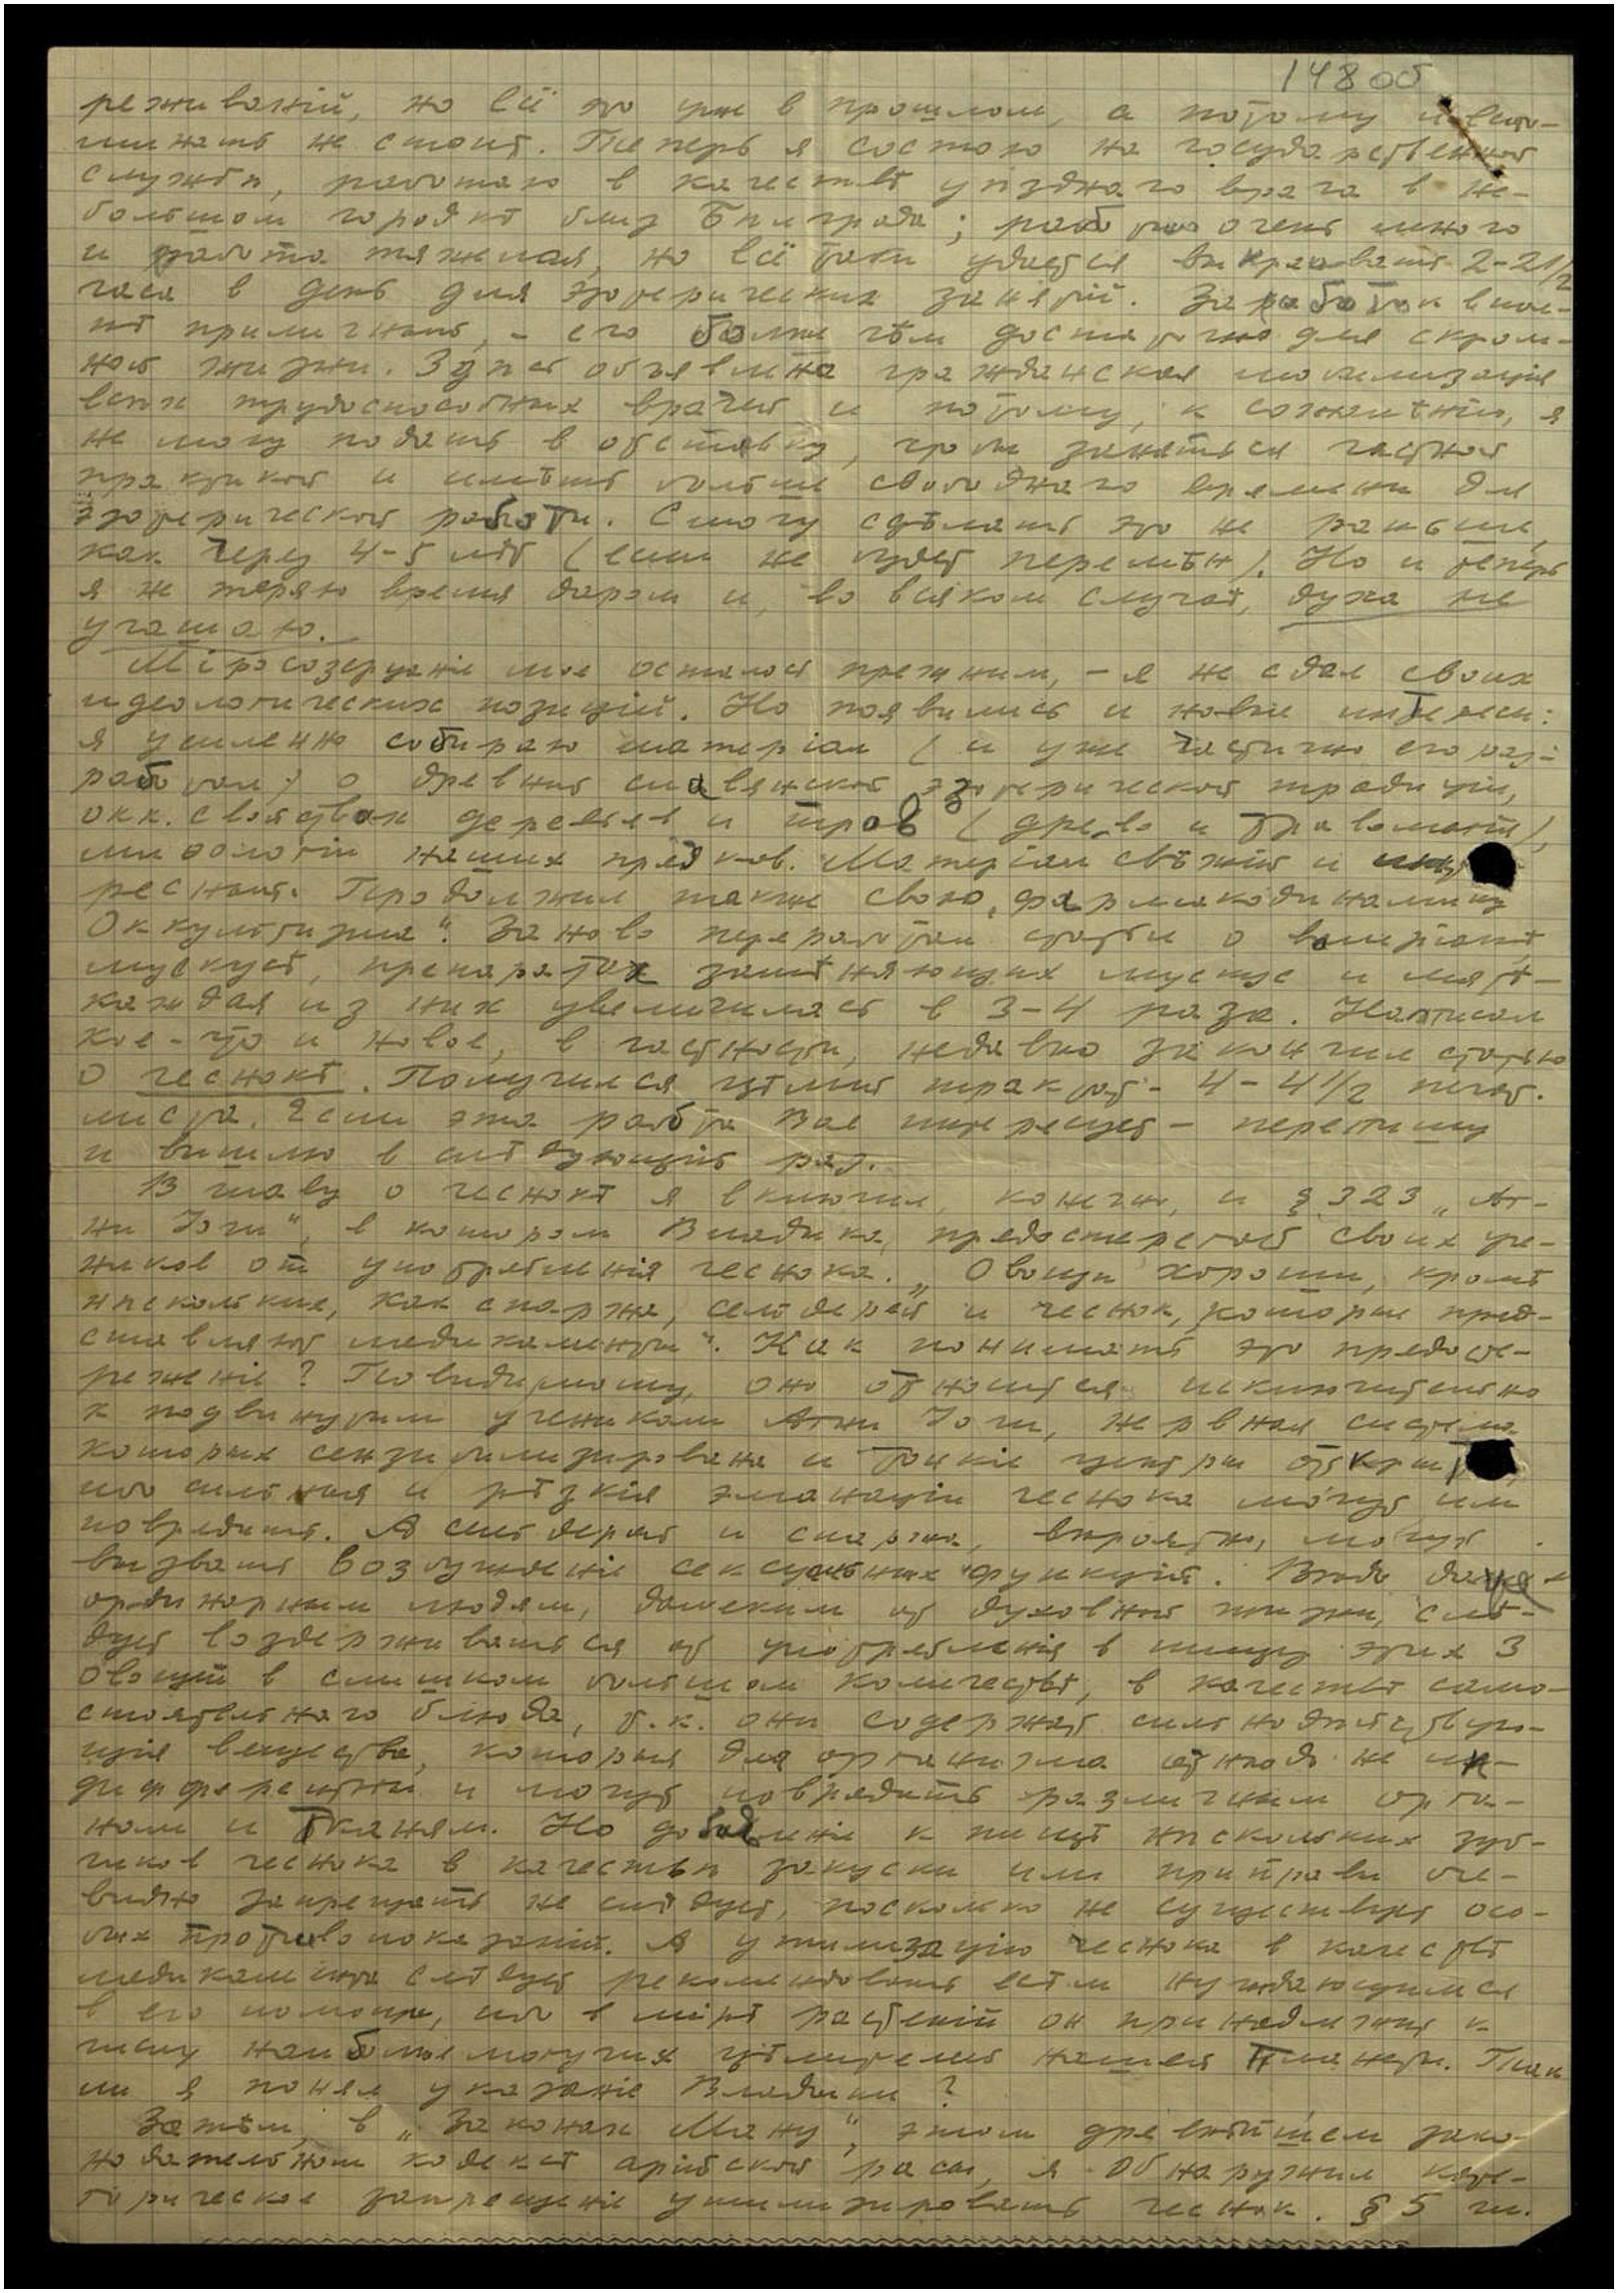 148 об
реживаній, но всё это уже в прошлом, а потому и вспо-
минать не стоит. Теперь я состою на государственной
службѣ, работаю в качествѣ уѣзднаго врача в не-
большом городкѣ близ Бѣлграда; работаю очень много
и работа тяжелая, но всё таки удается выкраивать 2-2 1/2
часа в день для эзотерических занятій. Заработок впол-
нѣ приличный, - его более чѣм достаточно для скром-
ной жизни. Здѣсь объявлена гражданская мобилизація
всѣх трудоспособных врачей и потому, к сожалѣнію, я
не могу подать в отставку, чтобы заняться частной
практикой и имѣть больше свободнаго времени для
эзотерической работы. Смогу сдѣлать это не раньше,
как через 4-5 лѣт (если не будет перемѣн). Но и теперь
я не теряю время даром и, во всяком случаѣ, духа не
угашаю.
Міросозерцаніе мое осталось прежним, - я не сдал своих
идеологических позицій. Но появились и новые интересы:
я усиленно собираю матеріал (и уже частично его раз-
работал) о древней славянской эзотерической традиціи,
окк. свойствах деревьев и трав (древо и травоманти),
миѳологіи наших предков. Матеріал свѣжій и инте
ресный. Продолжил также свою „фармакодинамику
Оккультизма". Заново переработал статьи о валеріанѣ,
мускусѣ, препаратах замѣняющих мускус и мятѣ -
каждая из них увеличилась в 3-4 раза. Написал
кое-что и новое, в частности, недавно закончил статью
о чеснокѣ. Получился цѣлый трактат - 4-4 1/2 печат.
листа. Если эта работа Вас интересует - перепишу
и вышлю в слѣдующій раз.
В главу о чеснокѣ я включил, конечно, и § 323 „Аг-
ни Йоги", в котором Владыка предостерегает своих уче-
ников от употребленія чеснока. „Овощи хороши, кромѣ
нѣскольких, как спаржа, сельдерей и чеснок, которые пред-
ставляют медикаменты". Как понимать это предосте-
реженіе? Повидимому, оно относится исключительно
к подвинутым ученикам Агни Йоги, нервная система
которых сензитилизирована и тонкіе центры открыты,
ибо сильныя и рѣзкія эманаціи чеснока могут им
повредить. А сельдерей и спаржа, вѣроятно, могут
вызвать возбужденіе сексуальных функцій. Вѣдь даже и
ординарным людям, далеким от духовной жизни, слѣ-
дует воздерживаться от употребленія в пищу этих 3
овощей в слишком большом количествѣ, в качествѣ само-
стоятельнаго блюда, т.к. они содержат сильнодѣйствую-
щія вещества, которыя для организма отнюдь не ин-
дифферентны и могут повредить различным орга-
нам и тканям. Но добавленіе к пищѣ нѣскольких зуб-
чиков чеснока в качествѣ закуски или приправы оче-
видно запрещать не слѣдует, поскольку не существует осо-
бых противопоказаній. А утилизацію чеснока в качествѣ
медикамента слѣдует рекомендовать всѣм нуждающимся
в его помощи, ибо в мірѣ растеній он принадлежит к
числу наиболее могучих цѣлителей нашей планеты. Так
ли я понял указаніе Владыки?
Затѣм, в „Законах Ману", этом древнѣйшем зако-
нодательном кодексѣ арійской расы, я обнаружил кате-
горическое запрещеніе утилизировать чеснок. § 5 гл.